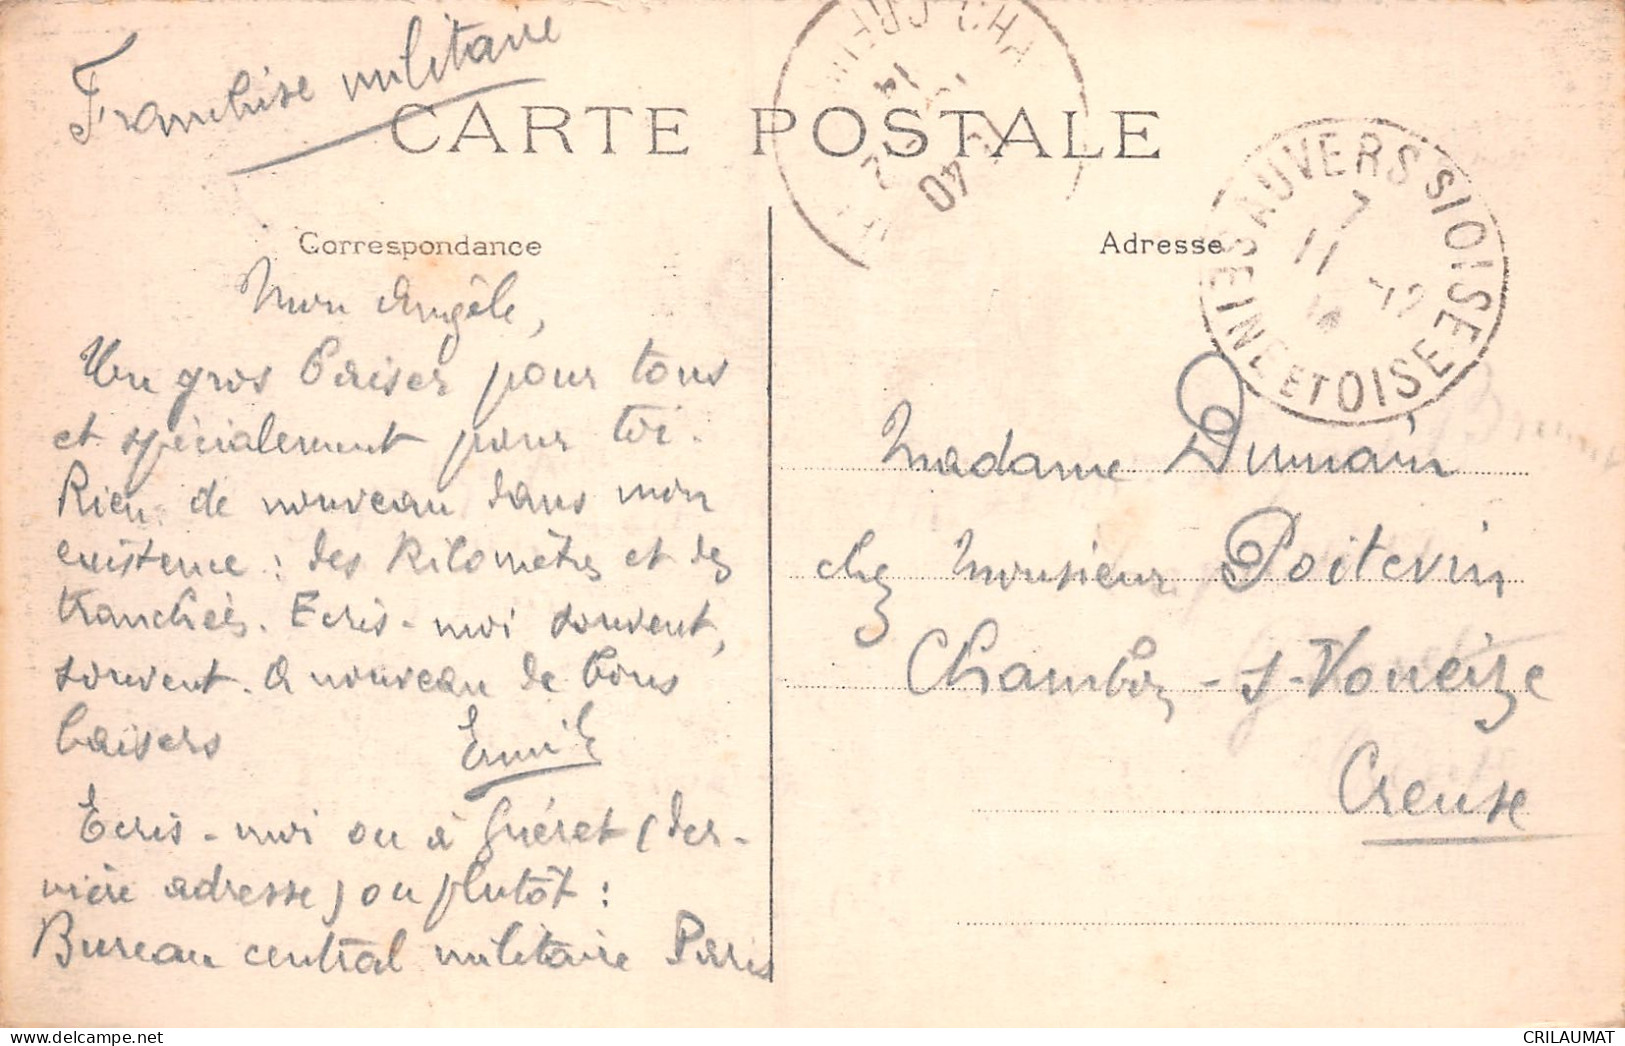 Franchise militaire
CARTE POSTALE
Correspondance
Mon Angèle,
Un gros baiser pour tous
et spécialement pour toi.
Rien de nouveau dans mon
existence : des kilomètres et des
tranchées. Ecris-moi souvent,
souvent. A nouveau de bons
baisers
Emile
Ecris-moi ou à Guéret (der-
nière adresse) ou plutôt :
Bureau central militaire Paris
40
AUVERS S/OISE
7
11 -12
SEINE ET OISE
Adresse
Madame Dumain
chez Monsieur Poitevin
Chambon-s-Voueize
Creuse
delcampe.net
CRILAUMAT